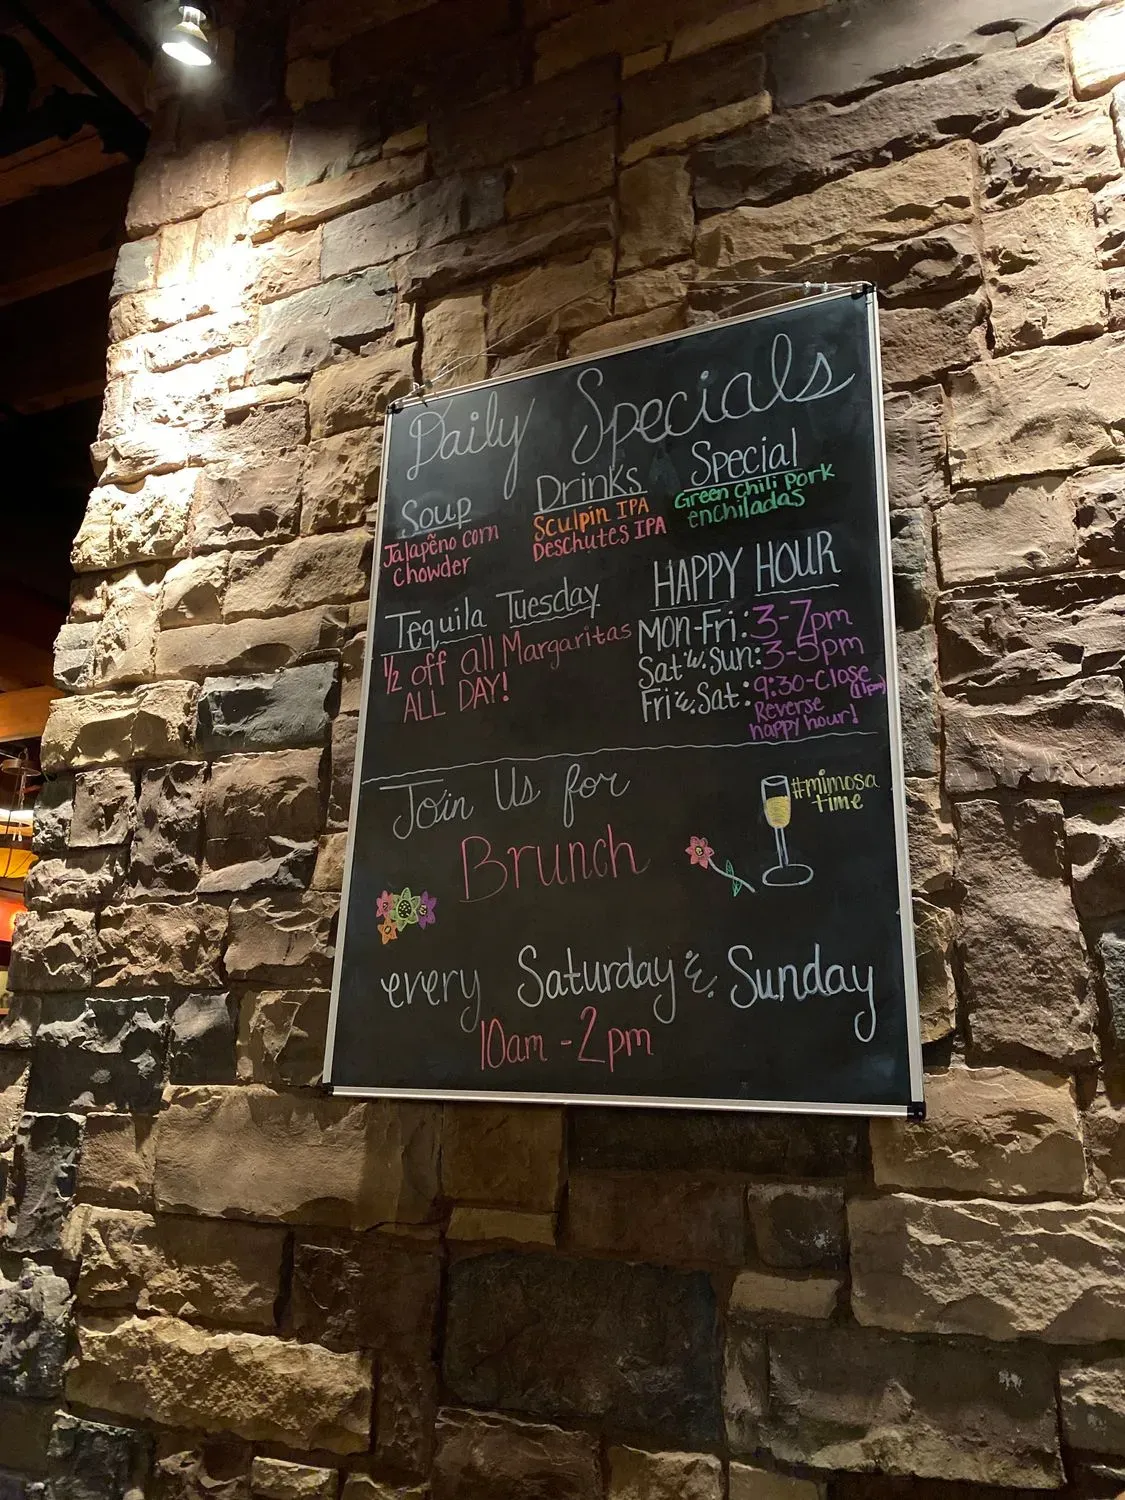 Daily Specials
Soup
Jalapeño corn
chowder
Drinks
Sculpin IPA
Deschutes IPA
Special
Green chili Pork
enchiladas
Tequila Tuesday
1/2 off all Margaritas
ALL DAY!
HAPPY HOUR
Mon-Fri: 3-7pm
Sat & Sun: 3-5pm
Fri & Sat: 9:30-Close
(11pm)
Reverse
happy hour!
Join Us for
Brunch
#mimosa
time
every Saturday & Sunday
10am - 2pm